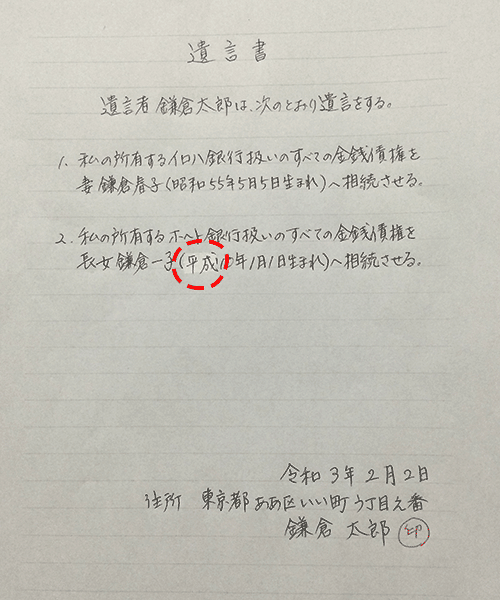 遺言書
遺言者 鎌倉太郎は、次のとおり遺言をする。
1. 私の所有するイロハ銀行扱いのすべての金銭債権を
妻 鎌倉春子(昭和55年5月5日生まれ)へ相続させる。
2. 私の所有するホヘト銀行扱いのすべての金銭債権を
長女 鎌倉一子(平成10年1月1日生まれ)へ相続させる。
令和3年2月2日
住所 東京都ああ区いい町う丁目え番
鎌倉 太郎 印